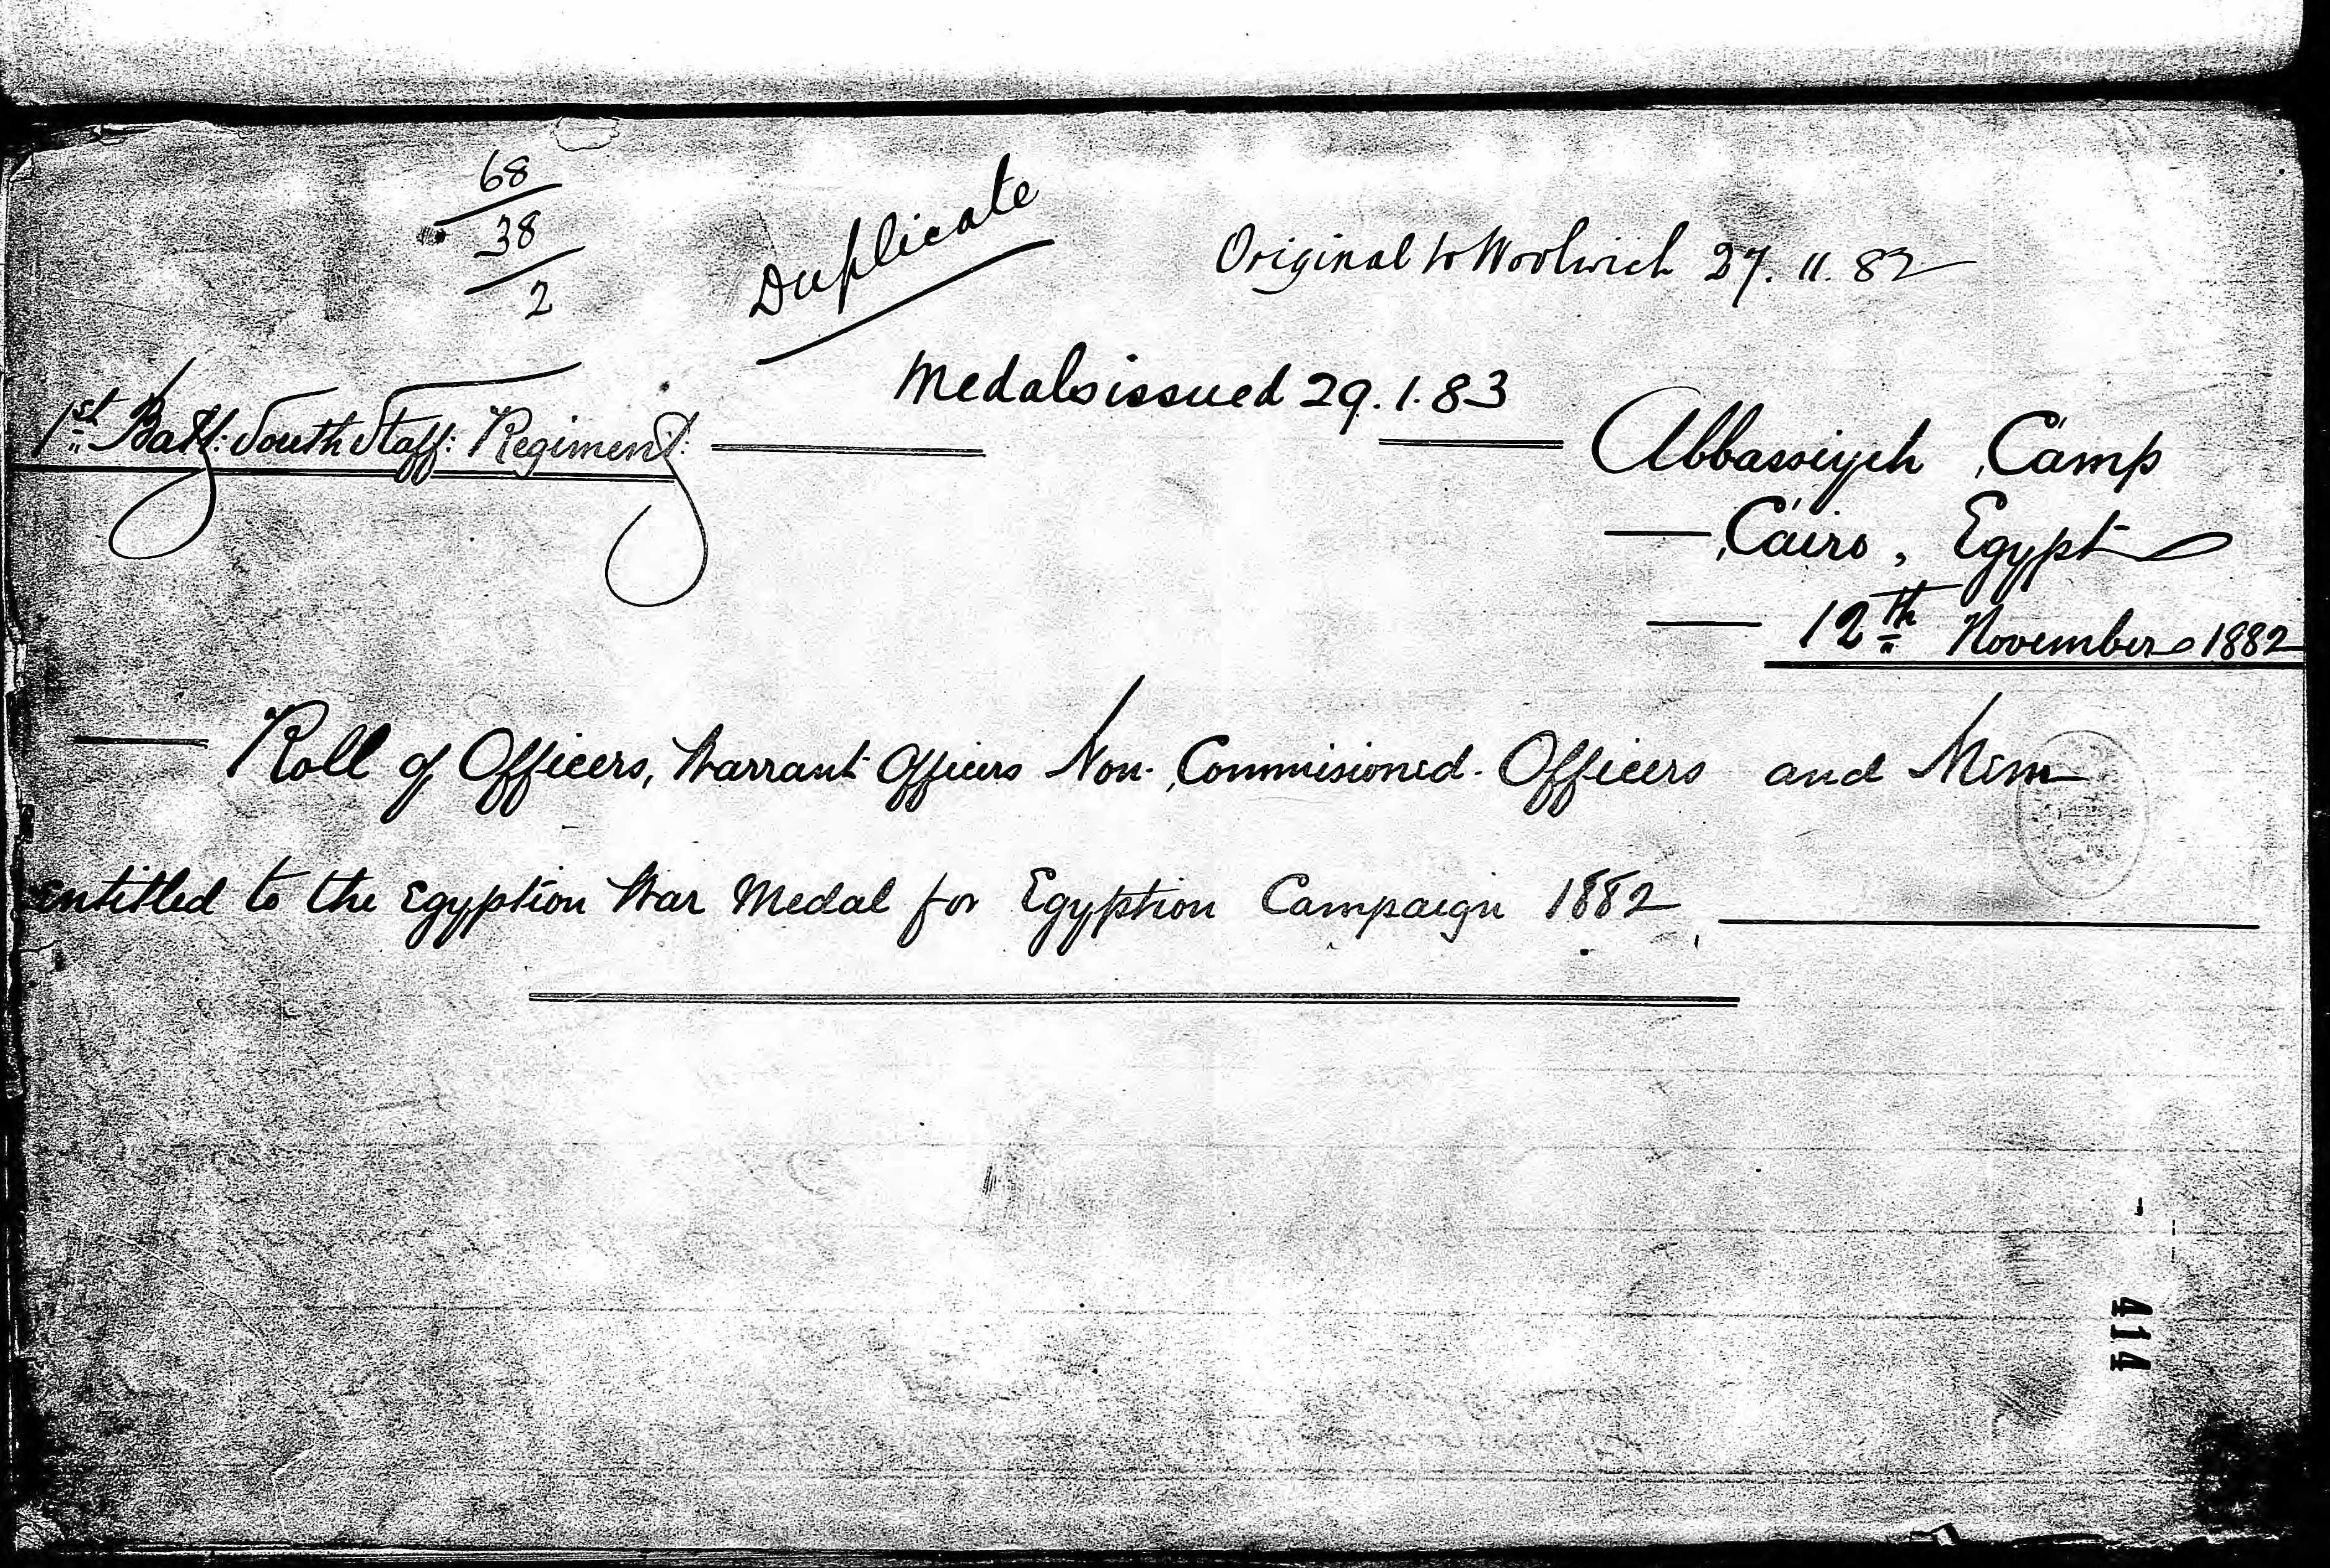 68
38
2
Duplicate
Original to Woolwich 27.11.82
Medals issued 29.1.83
1st Batt: South Staff: Regiment:
Abbassiyeh Camp
Cairo, Egypt
12th November 1882
Roll of Officers, Warrant Officers Non-Commisioned-Officers and Men
entitled to the Egyption War Medal for Egyption Campaign 1882
414